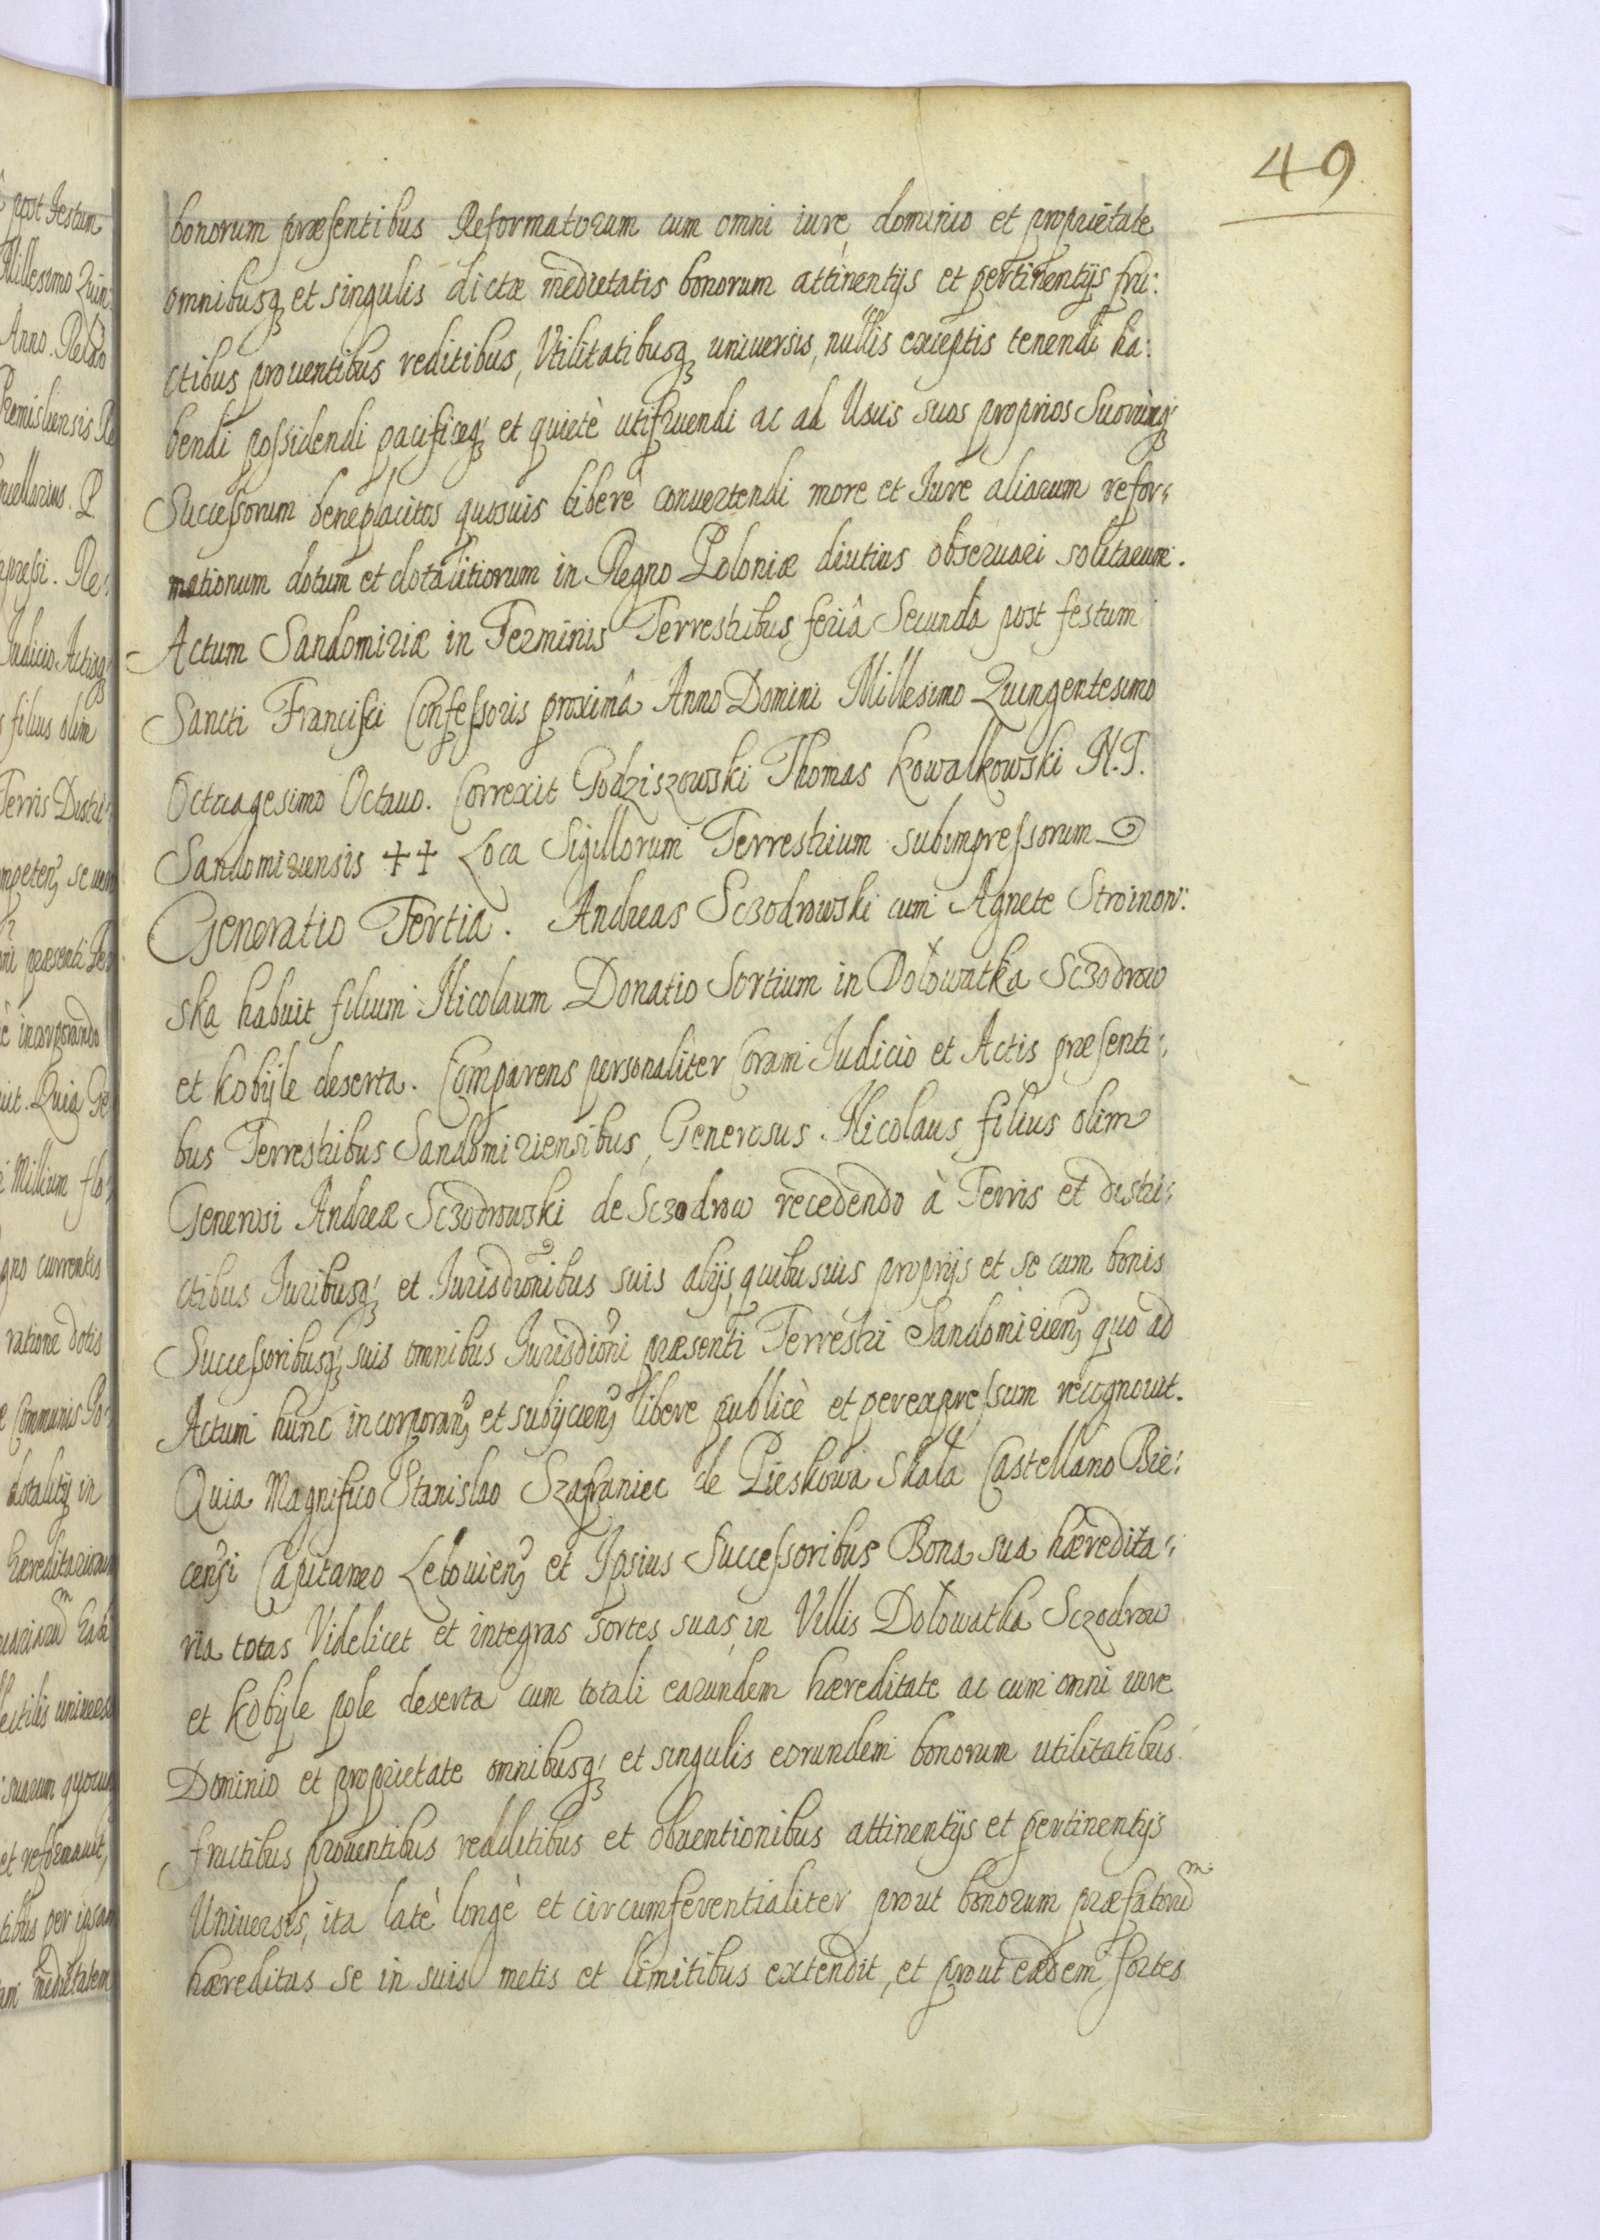 49
bonorum præsentibus Reformatorum cum omni iure, dominio et proprietate
omnibusq3 et singulis dictæ medietatis bonorum attinentijs et pertinentijs fru:
ctibus prouentibus reditibus, Vtilitatibusq3 universis, nullis exceptis tenendi ha:
bendi possidendi pacificeq3 et quietè utifruendi ac ad Usus suos proprios Suorumq3
Successorum beneplacitos quosuis liberè convertendi more et Iure aliarum refor:
mationum dotum et dotalitiorum in Regno Poloniæ diutius observari solitarum.
Actum Sandomiriæ in Terminis Terrestribus feriâ Secundâ post festum
Sancti Francisci Confessoris proximâ Anno Domini Millesimo Quingentesimo
Octuagesimo Octauo. Correxit Godziszowski Thomas Kowalkowski N.T.
Sandomiriensis ++ Loca Sigillorum Terrestrium subimpressorum
Generatio Tertia. Andreas Sczodrowski cum Agnete Stroinow:
ska habuit filium Nicolaum Donatio Sortium in Dołowatka Sczodrow
et Kobÿle deserta. Comparens personaliter Coram Iudicio et Actis præsenti:
bus Terrestribus Sandomiriensibus, Generosus Nicolaus filius olim
Generosi Andreæ Sczodrowski de Sczodrow recedendo à Terris et distri:
ctibus Iuribusq3 et Iurisdionibus suis alijs, quibusuis proprijs et se cum bonis
Successoribusq3 suis omnibus Iurisdioni præsenti Terrestri Sandomirien3 quo ad
Actum hunc incorporan3 et subijcien3 libere publicè et per expressum recognouit.
Quia Magnifico Stanislao Szafraniec de Pieskowa Skała Castellano Bie:
censi Capitaneo Lelouien3 et Ipsius Successoribus Bona sua hæredita:
ria totas Videlicet et integras sortes suas, in Villis Dołowatka Sczodrow
et Kobÿle pole deserta cum totali earundem hæreditate ac cum omni iure
Dominio et proprietate omnibusq3 et singulis eorundem bonorum utilitatibus
fructibus prouentibus redditibus et obuentionibus attinentijs et pertinentijs
Universis, ita latè longè et circumferentialiter prout bonorum præfatorum
hæreditas se in suis metis et limitibus extendit, et prout eædem sortes